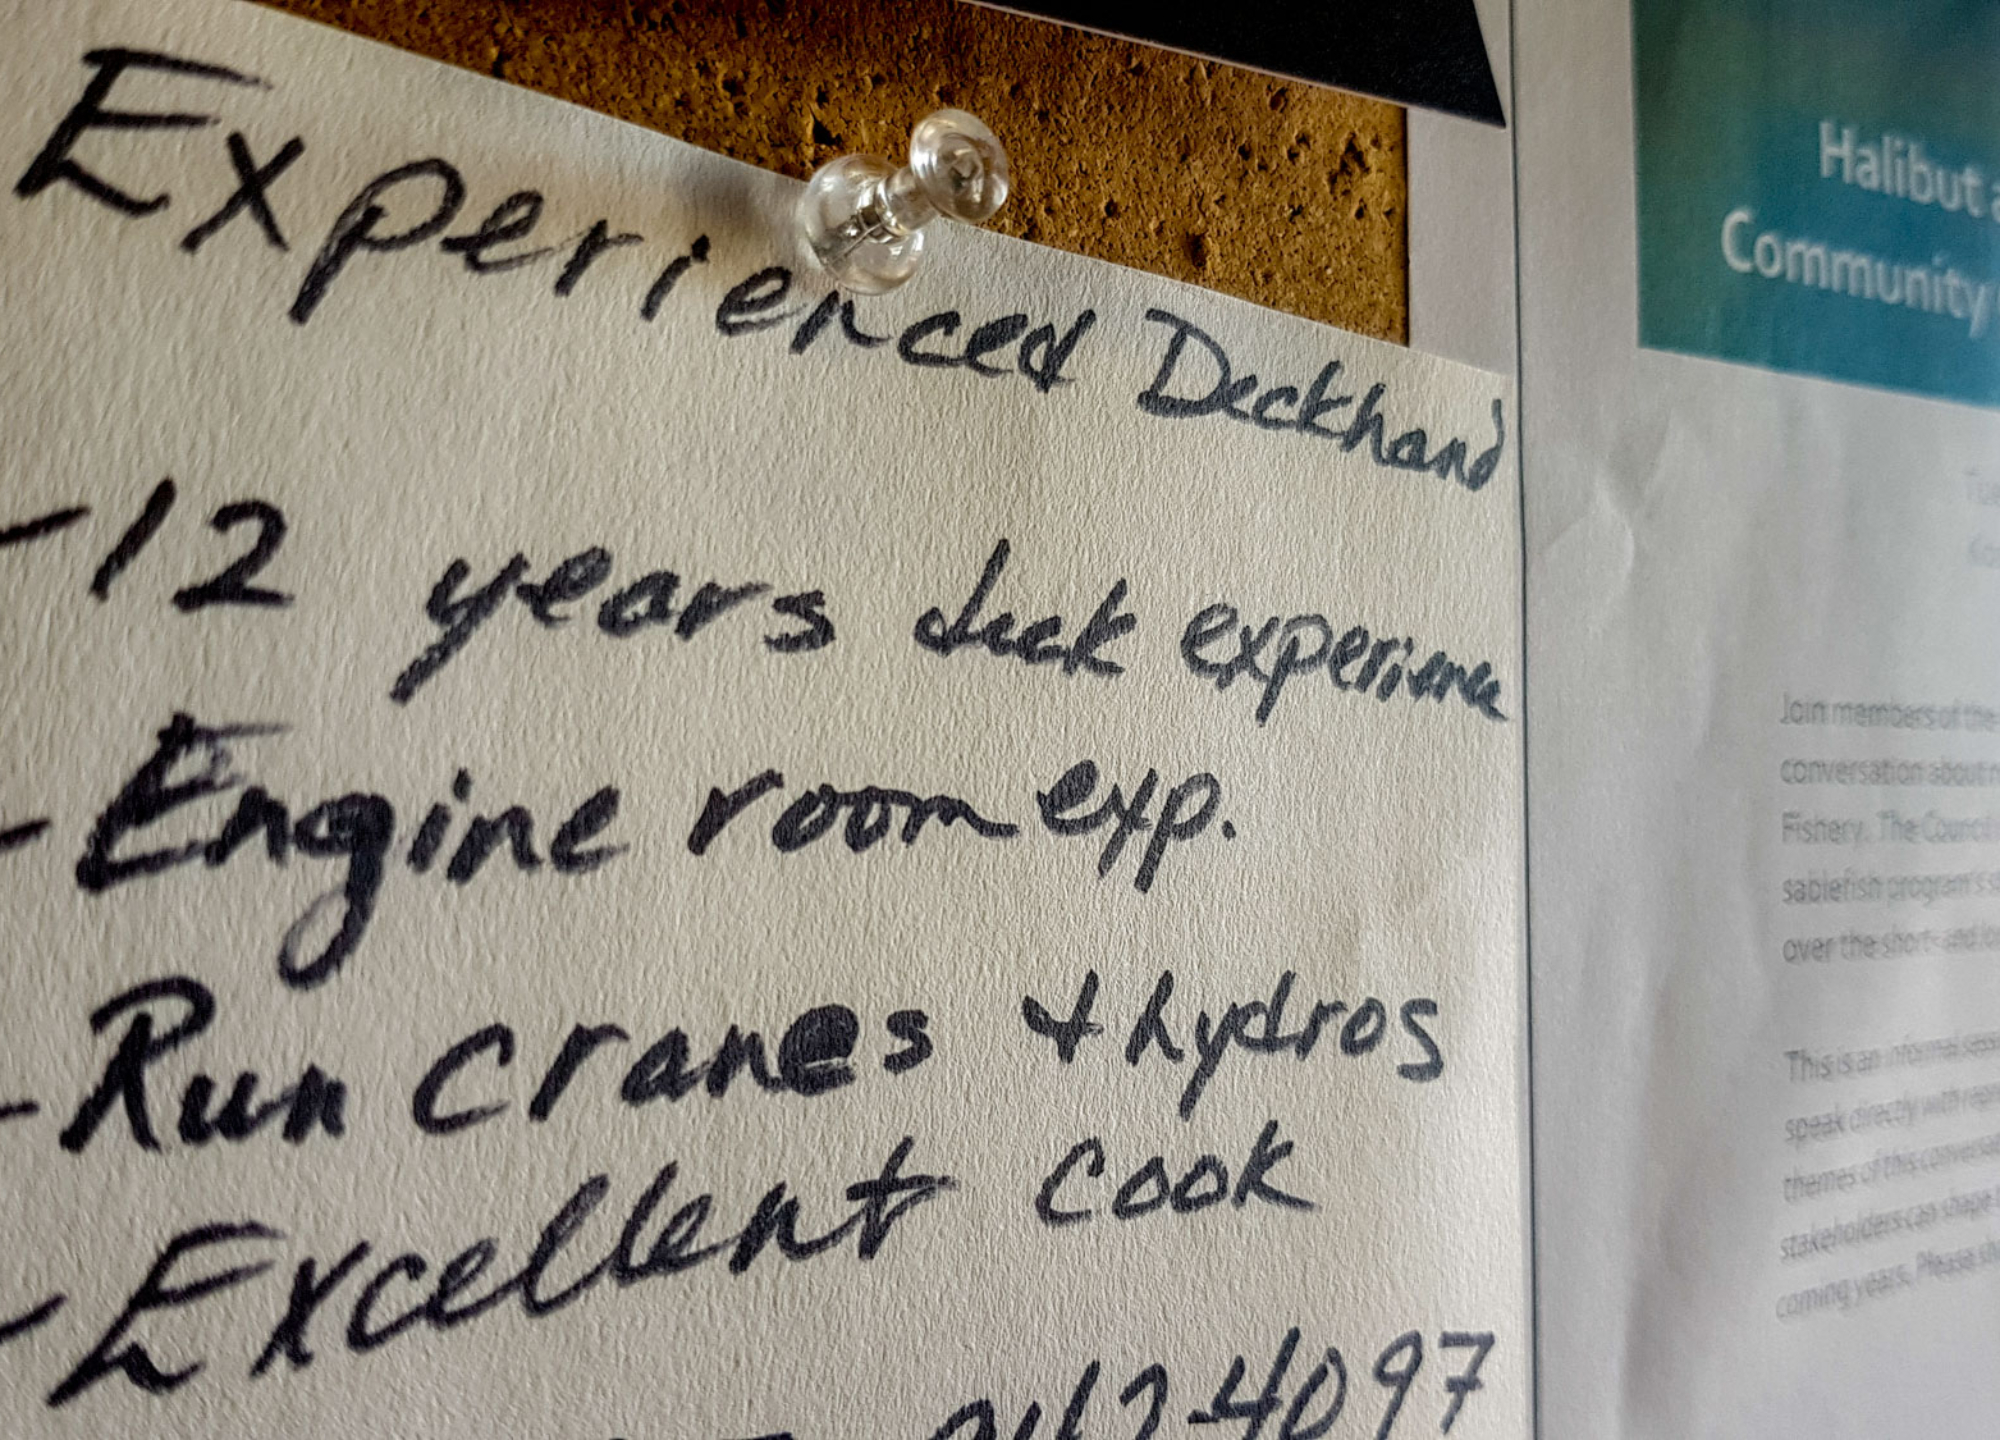 Experienced Deckhand
-12 years deck experience
-Engine room exp.
-Run cranes + hydros
-Excellent cook
4097
Halibut
Community
Join members of the
conversation about
Fishery. The Council
sablefish program's
over the short- and
This is an informal
speak directly with
themes of this
stakeholders can shape
coming years. Please